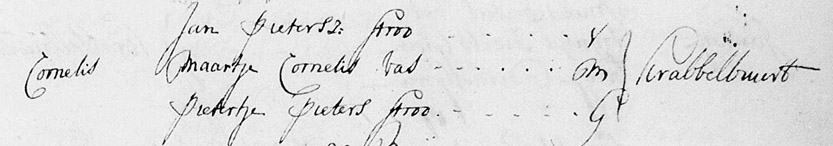 Jan Pietersz: Stroo . . . . . . V
Cornelis Maartje Cornelis bas . . . . . . M } Krabbelbuurt
Pietertje Pieters Stroo . . . . . . G